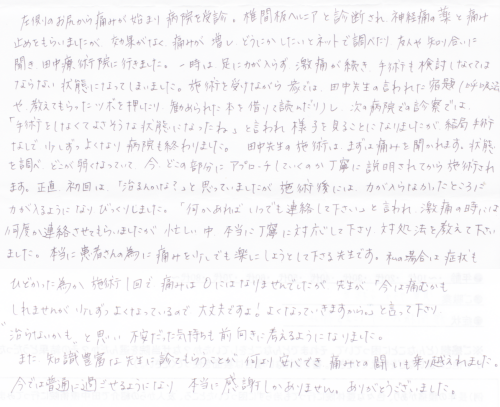 左側のお尻から痛みが始まり病院を受診。椎間板ヘルニアと診断され、神経痛の薬と痛み
止めをもらいましたが効果がなく痛みが増しどうにかしたいとネットで調べたり友人や知り合いに
聞き田中療術院に行きました。一時は足に力が入らず激痛が続き手術も検討しなくては
ならない状態になってしまいました。施術を受けながら家では、田中先生の言われた宿題(呼吸法
や教えてもらったツボを押したり勧められた本を借りて読んだり)し次の病院での診察では
「手術をしなくてよさそうな状態になったね」と言われ様子を見ることになりましたが結局手術
なしで少しずつよくなり病院も終わりました。田中先生の施術は、まずは痛みを聞かれます。状態
を調べ、どこが弱くなっていて今、どこの部分にアプローチしていくのか丁寧に説明されてから施術され
ます。正直初回は、「治まんかな?」と思っていましたが施術後には力が入らなかったところに
力が入るようになりびっくりしました。「何かあればいつでも連絡して下さい」と言われ、激痛の時には
何度か連絡させてもらいましたが忙しい中本当に丁寧に対応して下さり対処法を教えて下さい
ました。本当に患者さんの為に痛みを少しでも楽にしようとして下さる先生です。私の場合は症状も
ひどかった為か施術1回で痛みは0にはなりませんでしたが先生が「今は痛むかも
しれませんが少しずつよくなっているので大丈夫ですよ!よくなっていきますから。」と言って下さり
"治らないかも"と思い不安だった気持ちも前向きに考えるようになりました。
また知識豊富な先生に診てもらうことが何より安心でき痛みとの闘いも乗り越えれました。
今では普通に過ごせるようになり本当に感謝しかありません。ありがとうございました。